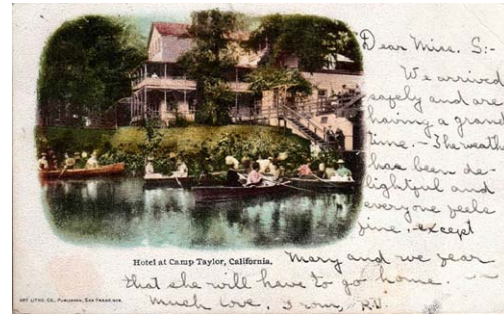 Dear Miss. S:-
We arrived
safely and are
having a grand
time. - The weather
has been de-
lightful and
everyone feels
fine. except
Mary and we fear
that she will have to go home.
Much love. From, R.V.
Hotel at Camp Taylor, California.
ART LITHO. CO., PUBLISHER, SAN FRANCISCO.